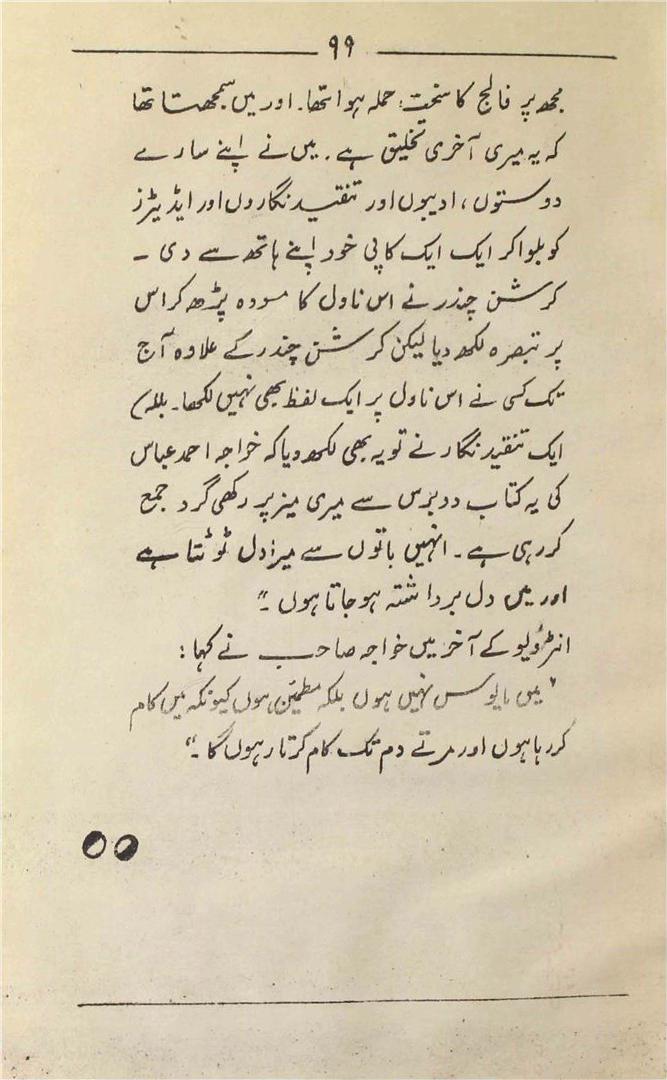 ۹۹
مجھ پر فالج کا سخت حملہ ہوا تھا۔ اور میں سمجھتا تھا
کہ یہ میری آخری تخلیق ہے۔ میں نے اپنے سارے
دوستوں، ادیبوں اور تنقید نگاروں اور ایڈیٹرز
کو بلوا کر ایک ایک کاپی خود اپنے ہاتھ سے دی ۔
کرشن چندر نے اس ناول کا مسودہ پڑھ کر اس
پر تبصرہ لکھ دیا لیکن کرشن چندر کے علاوہ آج
تک کسی نے اس ناول پر ایک لفظ بھی نہیں لکھا۔ بلکہ
ایک تنقید نگار نے تو یہ بھی لکھ دیا کہ خواجہ احمد عباس
کی یہ کتاب دو برس سے میری میز پر رکھی گرد جمع
کر رہی ہے ۔ انہیں باتوں سے میرا دل ٹوٹتا ہے
اور میں دل برداشتہ ہو جاتا ہوں ۔"
انٹرویو کے آخر میں خواجہ صاحب نے کہا :
" میں مایوس نہیں ہوں بلکہ مطمئن ہوں کیونکہ میں کام
کر رہا ہوں اور مرتے دم تک کام کرتا رہوں گا ۔"